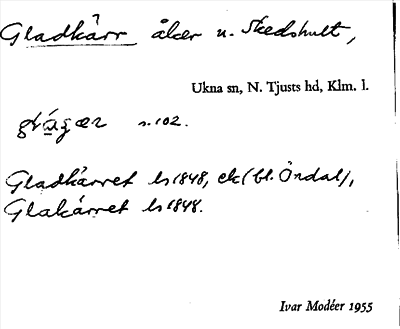 Gladkärr åker u. Skedshult,
Ukna sn, N. Tjusts hd, Klm. l.
s. 102.
Gladkärret ls 1848, ek (bl. Öndal),
Glakärret ls 1848.
Ivar Modéer 1955